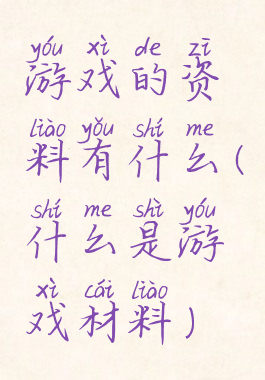 yóu xì de zī
游戏的资
liào yǒu shí me
料有什么(
shí me shì yóu
什么是游
xì cái liào
戏材料)